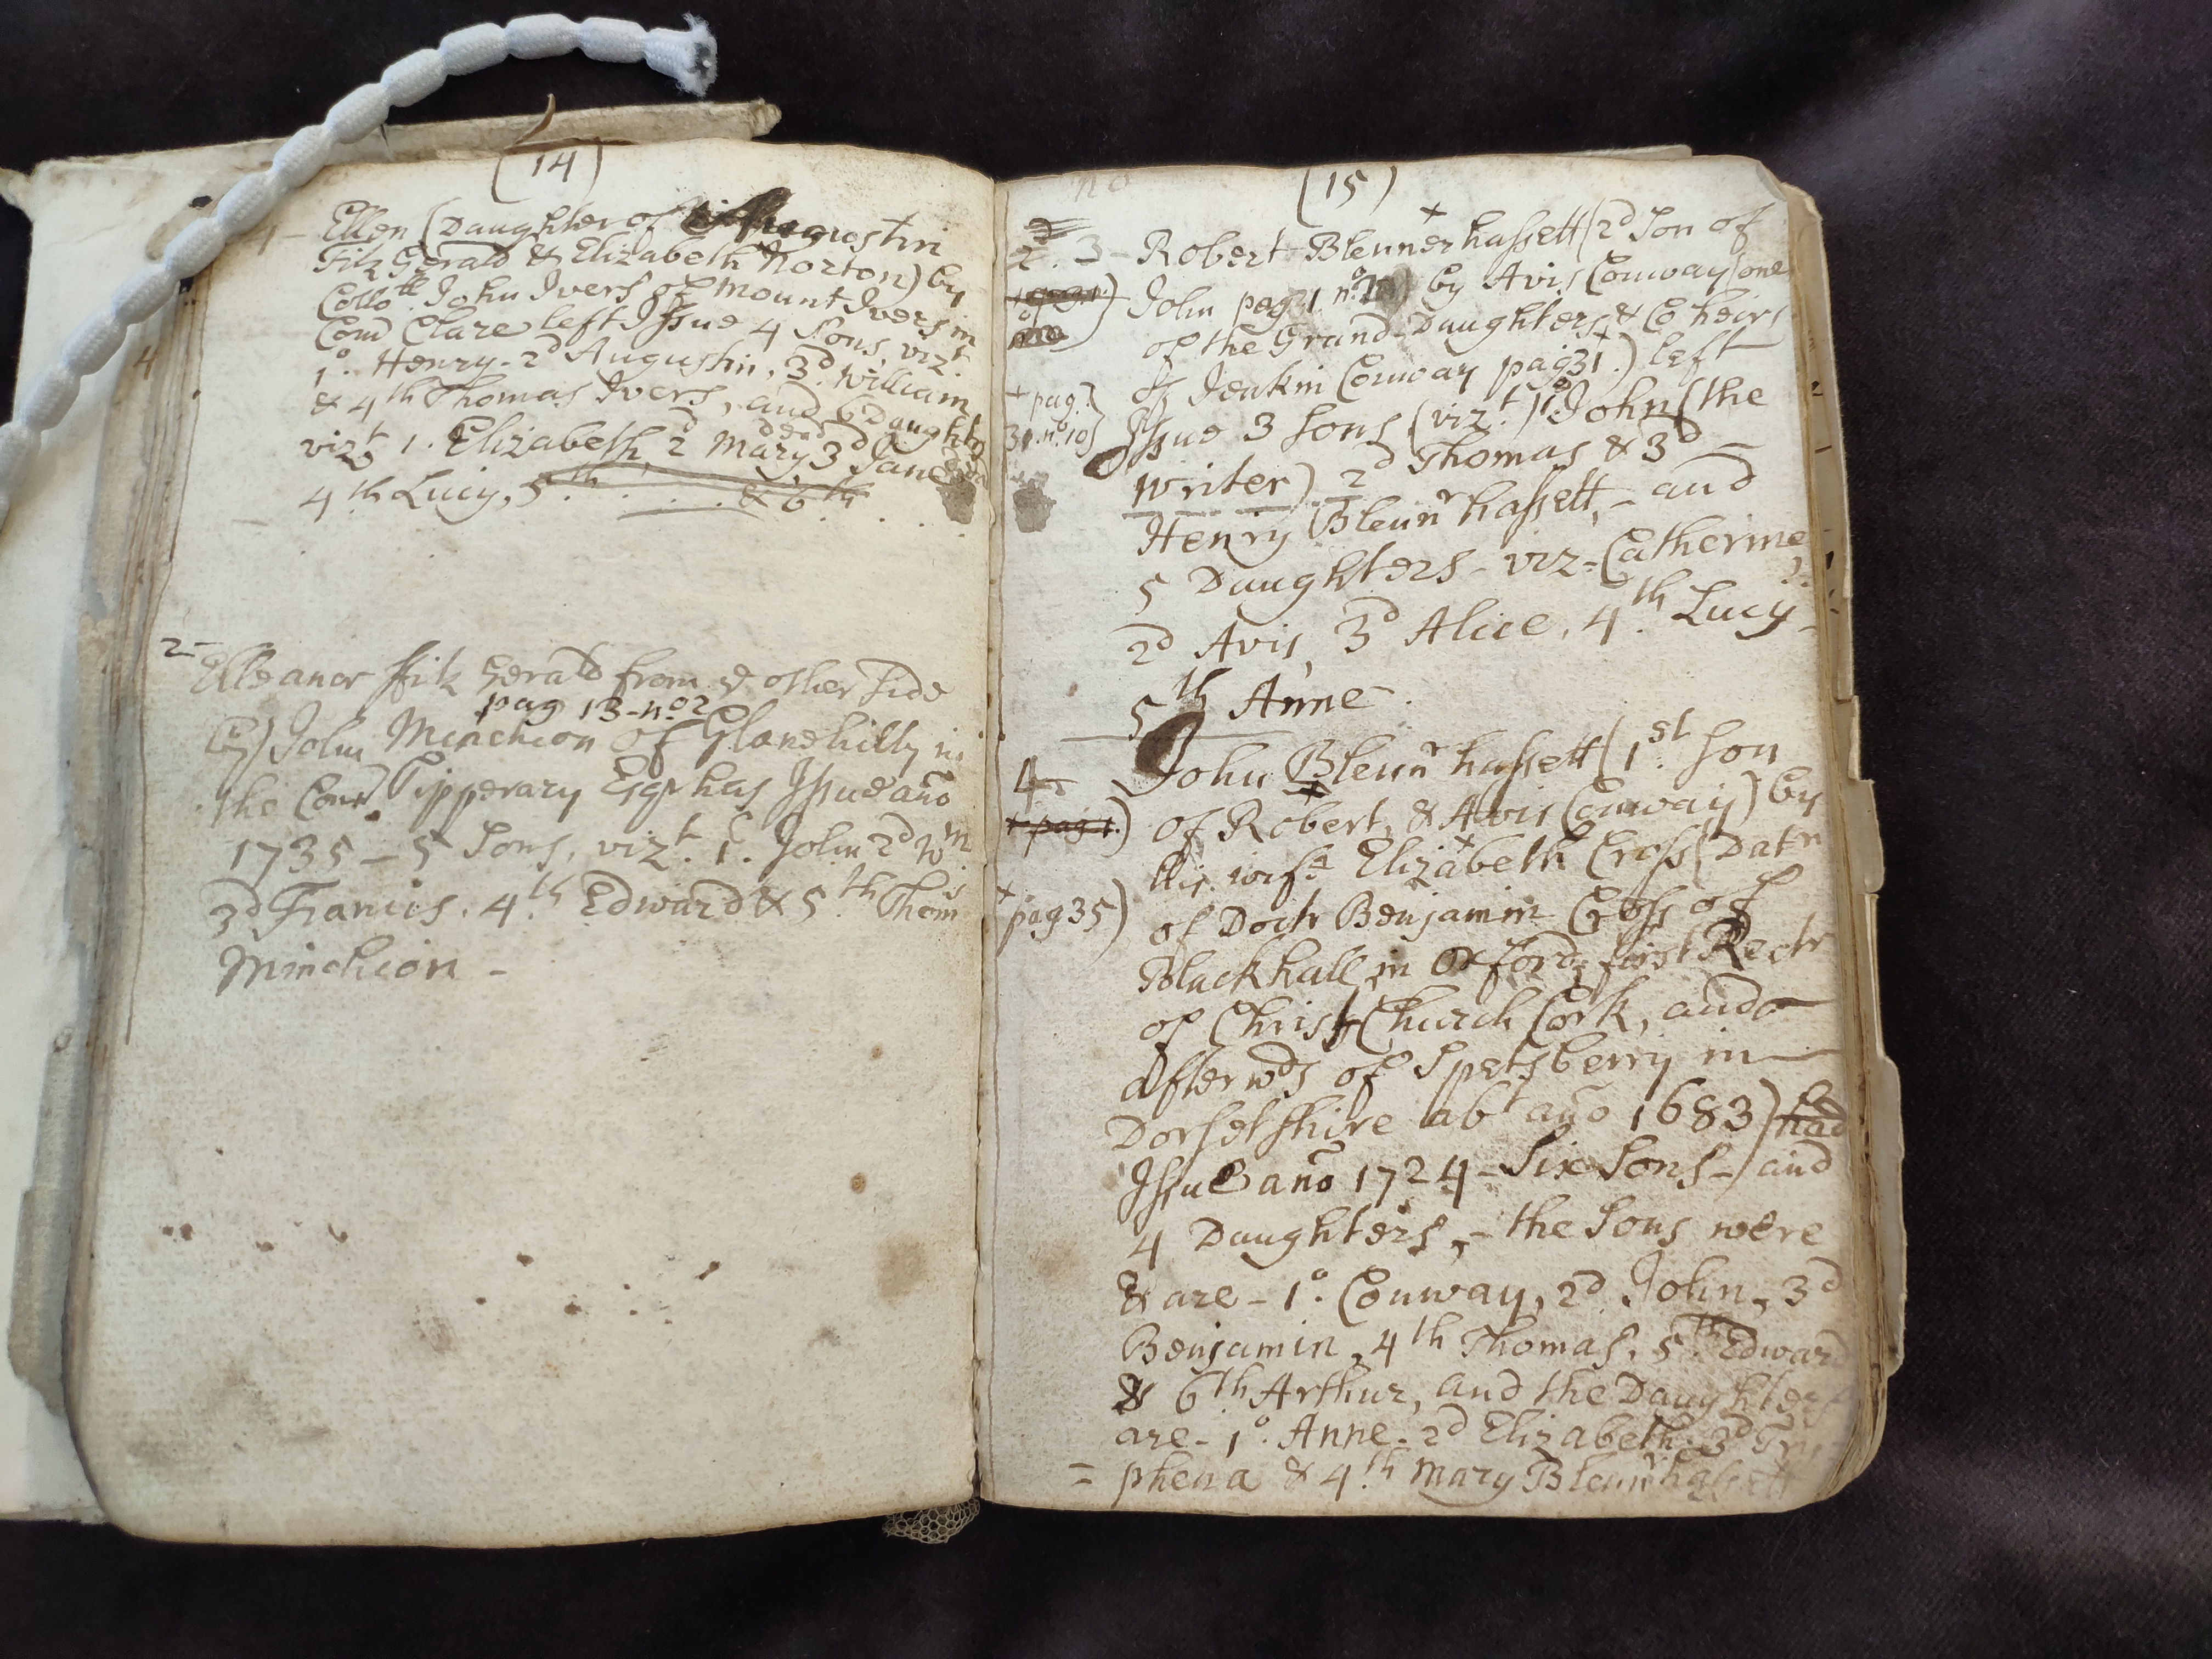 (14)
1 - Ellen (Daughter of Augustin
Fitz Gerald & Elizabeth Norton) by
Collo.ll John Ivers of Mount Ivers in
Com Clare left Issue 4 Sons, vizt.
1o. Henry - 2d Augustin, 3d. William
& 4th Thomas Ivers, and 6 Daughtrs
dead
vizt 1. Elizabeth, 2d Mary, 3d Jane dead
4th Lucy, 5th . . . . & 6th . . .
2 -
Elleanor ffitz Gerald from ye other side
pag 13 - no 2
by) John Minchion of Glanshilly in
the Com Tipperary Esqr has Issue año
1735 - 5 Sons, vizt. 1o. John 2d Wm
3d Francis. 4th Edward & 5th Thoms
Minchion -
(15)
2d. 3 - Robert Blennerhassett (2d Son of
John pag 31 no) by Avis Conway (one
of the Grand-Daughters & Co heirs
of Jenkin Conway pag 31.) left
+ pag.
31. no 10)
Issue 3 Sons (vizt.) 1o John (the
writer) 2d Thomas & 3d -
Henry Blennrhassett, - and
5 Daughters - viz - Catherine,
2d Avis, 3d Alice, 4th Lucy -
5th Anne -
4 - John Blennrhassett (1st. Son
+ pag 1.) of Robert & Avis Conway) by
his wife Elizabeth Cross (Datr
+ pag 35) of Doctr Benjamin Cross of
Blackhall in Oxford, first Rectr
of Christ Church Cork, and -
Afterwds of Spetsberry in -
Dorsetshire abt año 1683) had
Issue año 1724 - Six Sons - and
4 Daughters, - the Sons were
& are - 1o. Conway, 2d John, 3d
Benjamin, 4th Thomas, 5th Edward
& 6th Arthur, and the Daughters
are - 1o. Anne - 2d Elizabeth - 3d Try
= phena & 4th Mary Blennrhassett